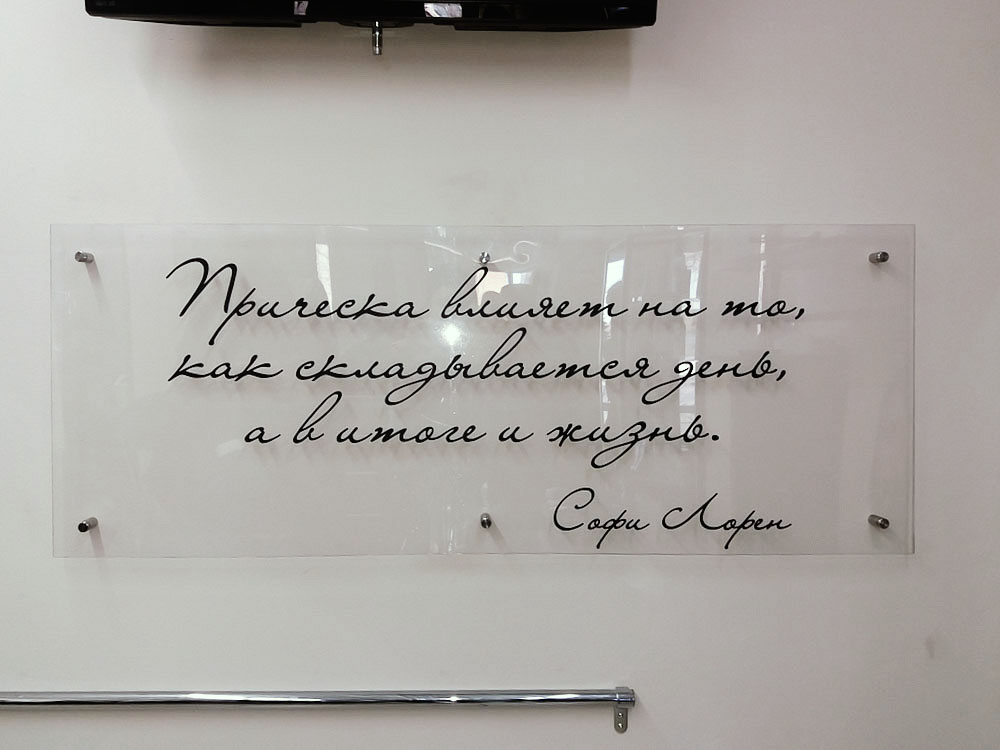 Прическа влияет на то,
как складывается день,
а в итоге и жизнь.
Софи Лорен